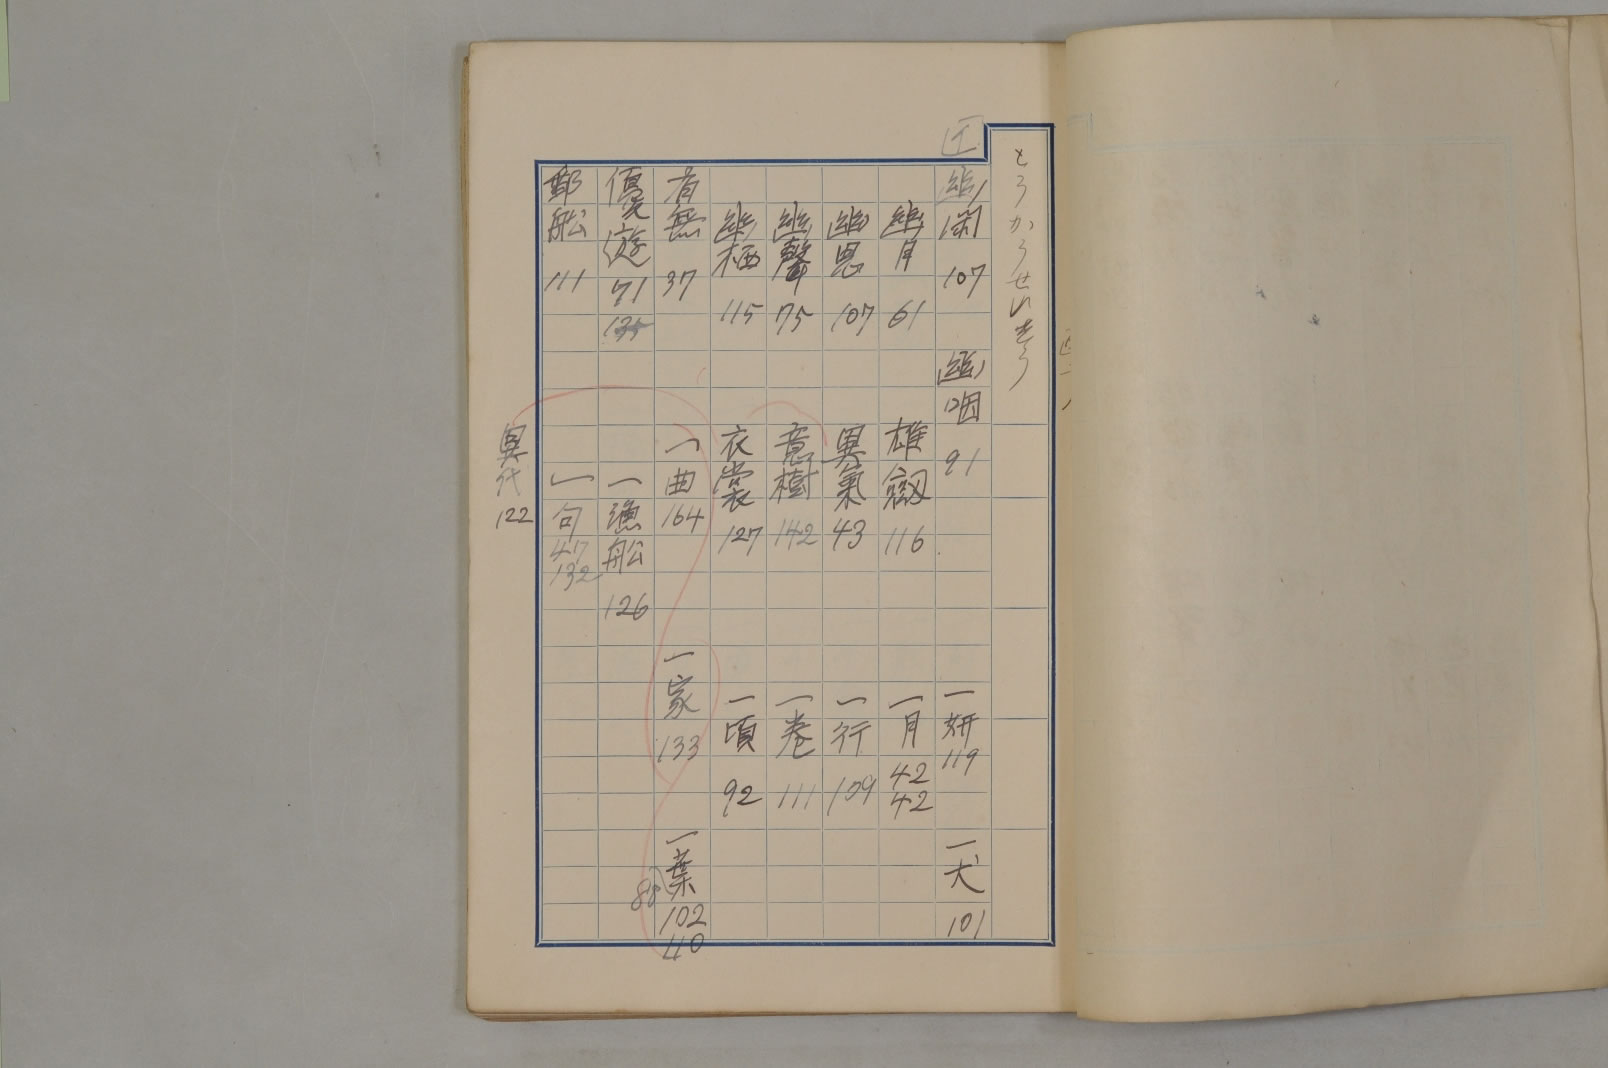 とうかうせいきう
イ
幽閑 107
幽咽 91
一妍 119
一犬 101
幽月 61
雄劔 116
一月 42 42
幽思 107
異氣 43
一行 109
幽聲 75
意樹 142
一巻 111
幽栖 115
衣裳 127
一頃 92
有無 37
一曲 164
一家 133
一葉 102 40
88
優遊 71 135
一漁船 126
郵船 111
一句 47 132
異代 122